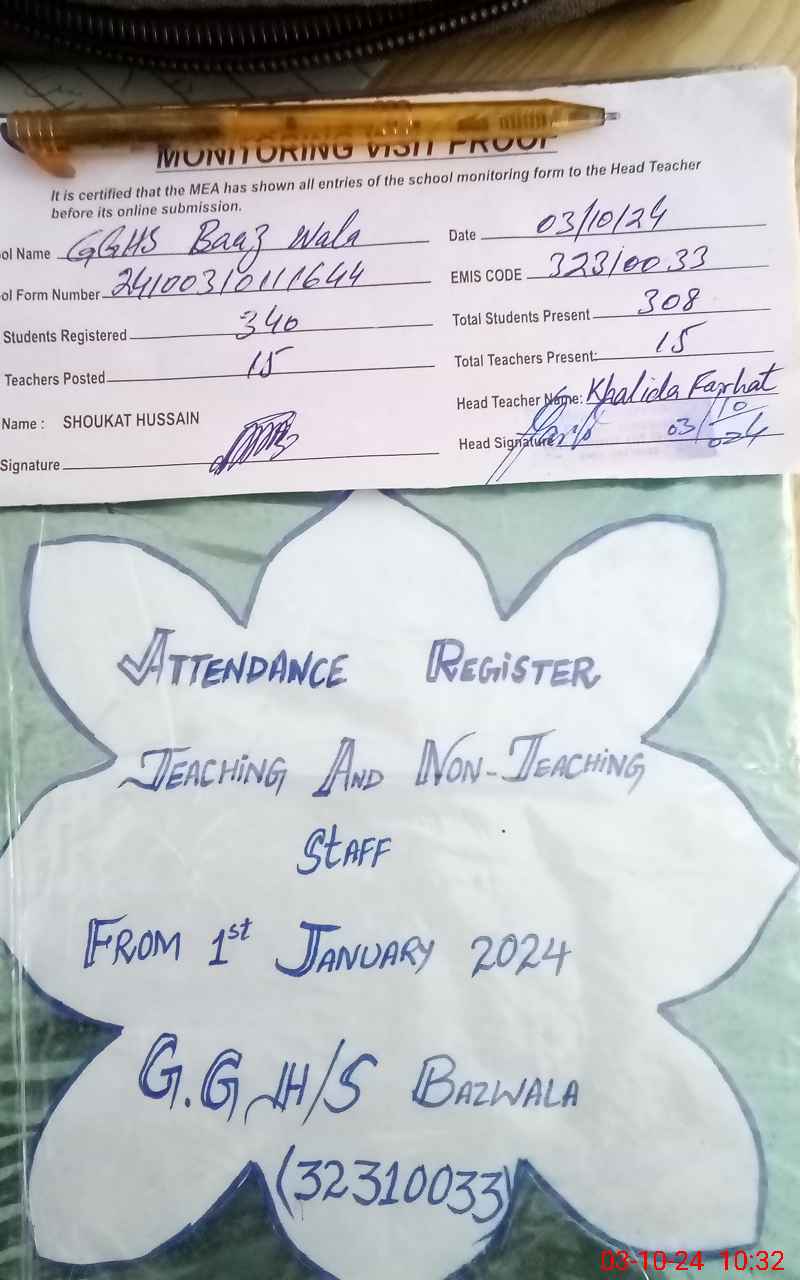 MONITORING VISIT PROOF
It is certified that the MEA has shown all entries of the school monitoring form to the Head Teacher
before its online submission.
ol Name GGHS Baaz Wala
Date 03/10/24
ol Form Number 24100310111644
EMIS CODE 32310033
Students Registered 340
Total Students Present 308
Teachers Posted 15
Total Teachers Present: 15
Name : SHOUKAT HUSSAIN
Head Teacher Name: Khalida Farhat
Signature
Head Signature 03/10/024
ATTENDANCE REGISTER
TEACHING AND NON-TEACHING
STAFF
FROM 1st JANUARY 2024
G.G.H/S BAZWALA
(32310033)
03-10-24 10:32